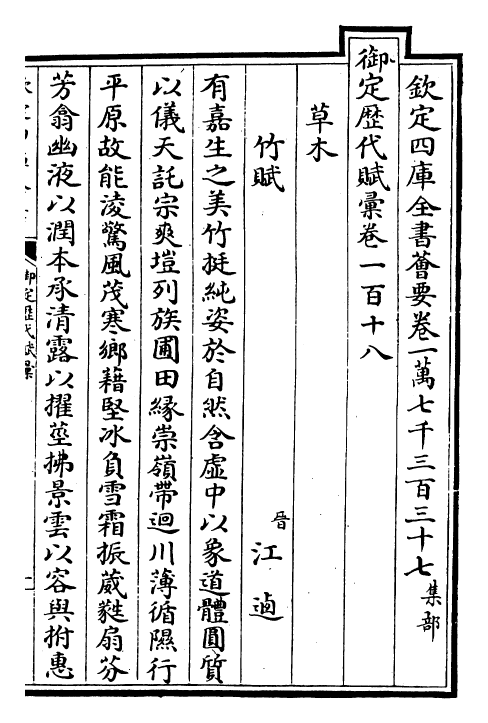 欽定四庫全書薈要卷一萬七千三百三十七 集部
御定歴代賦彙卷一百十八
草木
竹賦 晉 江逌
有嘉生之美竹挺純姿於自然含虛中以象道體圓質
以儀天託宗爽塏列族圃田緣崇嶺帶迴川薄循隰行
平原故能淩驚風茂寒鄉藉堅冰負雪霜振葳蕤扇芬
芳翕幽液以潤本承清露以擢莖拂景雲以容與拊惠
御定歴代賦彙